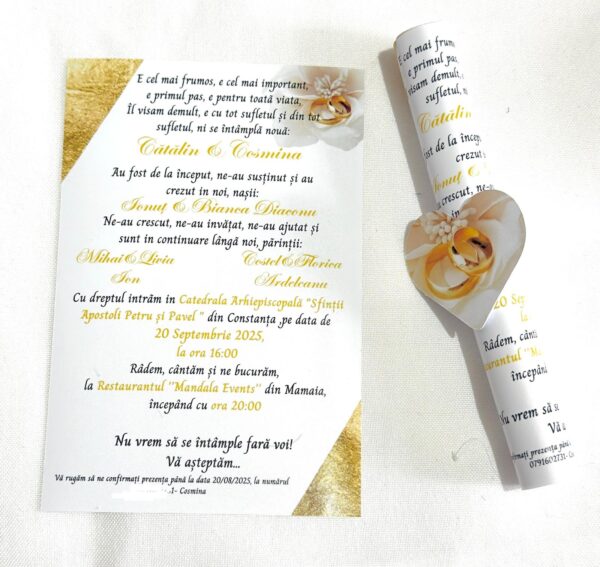 E cel mai frumos, e cel mai important,
e primul pas, e pentru toată viata,
Îl visam demult, e cu tot sufletul și din tot
sufletul, ni se întâmplă nouă:
Cătălin & Cosmina
Au fost de la început, ne-au susținut și au
crezut in noi, nașii:
Ionuț & Bianca Diaconu
Ne-au crescut, ne-au învățat, ne-au ajutat și
sunt in continuare lângă noi, părinții:
Mihai & Livia
Ion
Costel & Florica
Ardeleanu
Cu dreptul intrăm in Catedrala Arhiepiscopală "Sfinții
Apostoli Petru și Pavel " din Constanța ,pe data de
20 Septembrie 2025,
la ora 16:00
Râdem, cântăm și ne bucurăm,
la Restaurantul "Mandala Events" din Mamaia,
începând cu ora 20:00
Nu vrem să se întâmple fară voi!
Vă așteptăm...
Vă rugăm să ne confirmați prezența până la data 20/08/2025, la numărul
1- Cosmina
E cel mai frumos
e primul pas,
visam demult,
sufletul, ni
Cătălin
fost de la încep
crezut
Ionuț &
u crescut, ne-
in
20 Sep
la
Râdem, cânt
urantul "Man
începân
Nu vrem să se
Vă a
onfirmați prezența până
0791602731- Cosmin